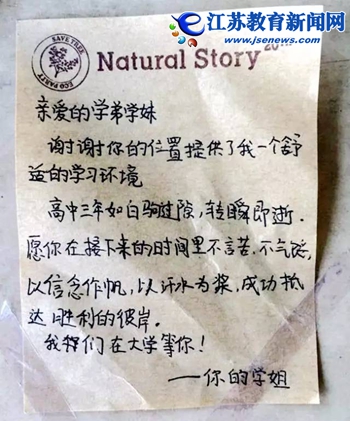 江苏教育新闻网
www.jsenews.com
SAVE TREE
ECO PARTY
Natural Story
亲爱的学弟学妹
谢谢你的位置提供了我一个舒
适的学习环境
高中三年如白驹过隙，转瞬即逝.
愿你在接下来的时间里不言苦.不气馁,
以信念作帆，以汗水为桨，成功抵
达胜利的彼岸.
我们在大学等你！
——你的学姐